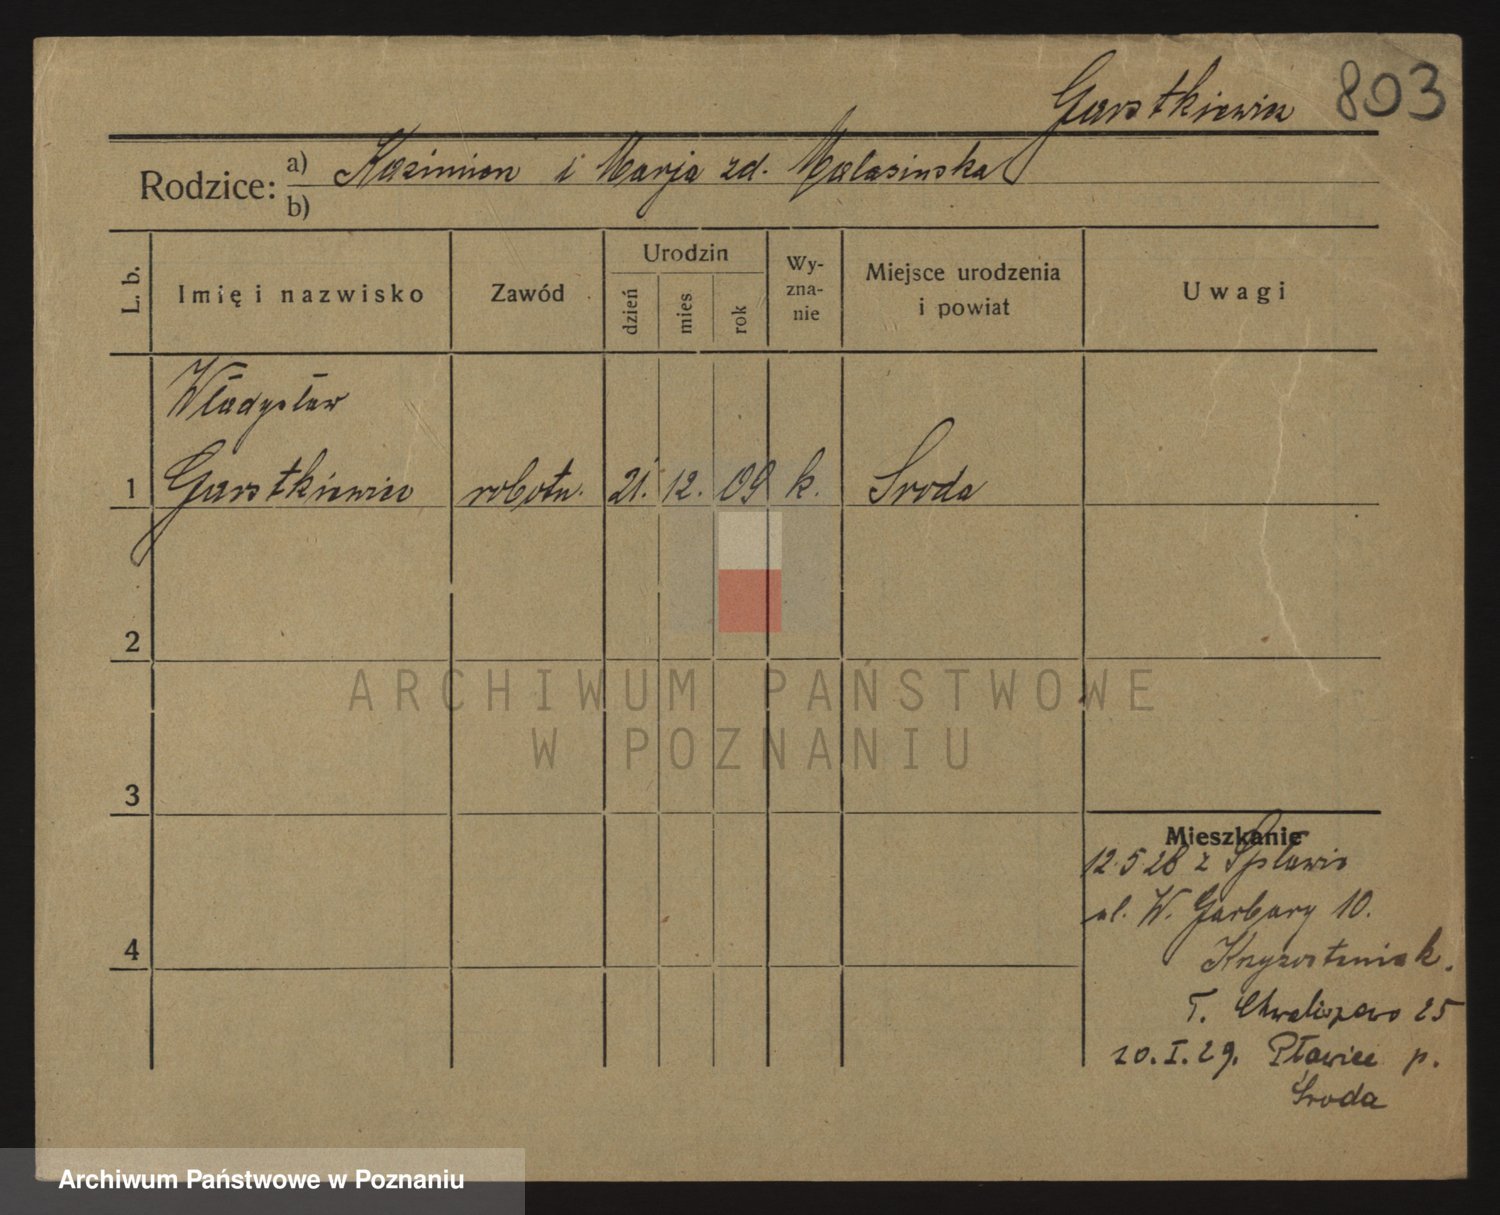 Garstkiewicz 803
Rodzice: a) Kazimierz i Marja zd. Malasinska
b)
L. b. Imię i nazwisko Zawód Urodzin dzień mies rok Wy-zna-nie Miejsce urodzenia i powiat Uwagi
Władysław
1 Garstkiewicz robotn. 21. 12. 09 k. Środa
2
ARCHIWUM PAŃSTWOWE
W POZNANIU
3
Mieszkanie
12.5 28 z Spławie
ul. W. Garbary 10.
4
Krzyżostaniak.
T. Chwaliszewo 25
20.I.29. Pławice p.
Środa
Archiwum Państwowe w Poznaniu